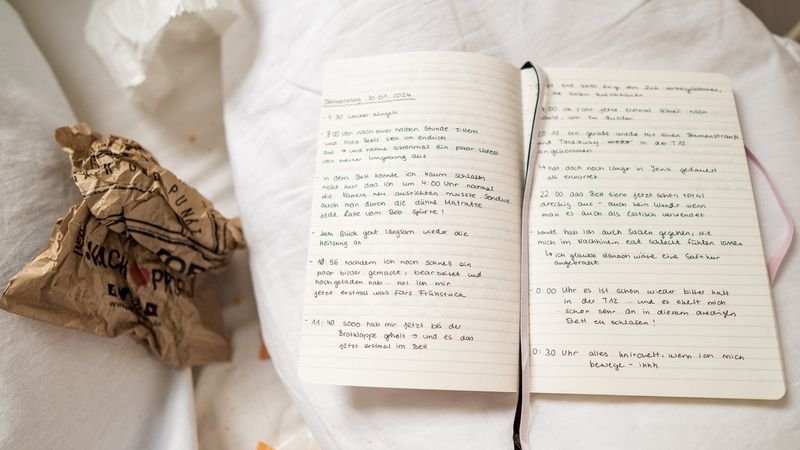 Donnerstag 30.01.2024
- 7:30 Wecker klingelt
- 8:00 Uhr nach einer halben Stunde zittern
und Insta Reels seh ich endlich
auf → und nehme schonmal ein paar Videos
von meiner Umgebung auf
- in dem Bett konnte ich kaum schlafen
nicht nur das ich um 4:00 Uhr nochmal
die Kamera neu ausrichten musste sondern
auch man durch die dünne Matratze
jede Latte vom Bett spürte!
- zum Glück geht langsam wieder die
Heizung an
- 10:56 nachdem ich noch schnell ein
paar bilder gemacht, bearbeitet und
hochgeladen hab ... hol ich mir
jetzt erstmal was fürs Frühstück
- 11:40 sooo hab mir jetzt bei der
Brotklappe geholt → und es das
jetzt erstmal im Bett
und
die
ich jetzt erstmal schnell nach
Hause, um zu duschen
20:10 bin gerade wieder mit einem Blumenstrauß
und Takeaway in der T12
angekommen
↳ hat doch noch länger in Jena gedauert
als erwartet
22:00 das Bett sieht jetzt schon total
dreckig aus - auch kein Wunder wenn
man es auch als Esstisch verwendet
- heute hab ich auch Sachen gegessen, die
mich im Nachhinein echt schlecht fühlen lassen
↳ ich glaube danach wäre eine Saftkur
angebracht
- 0:00 Uhr es ist schon wieder bitter kalt
in der T12 ... und es ekelt mich
schon sehr an in diesem dreckigen
Bett zu schlafen!
0:30 Uhr alles knirschelt, wenn ich mich
bewege - ihhh
UND PUNKT